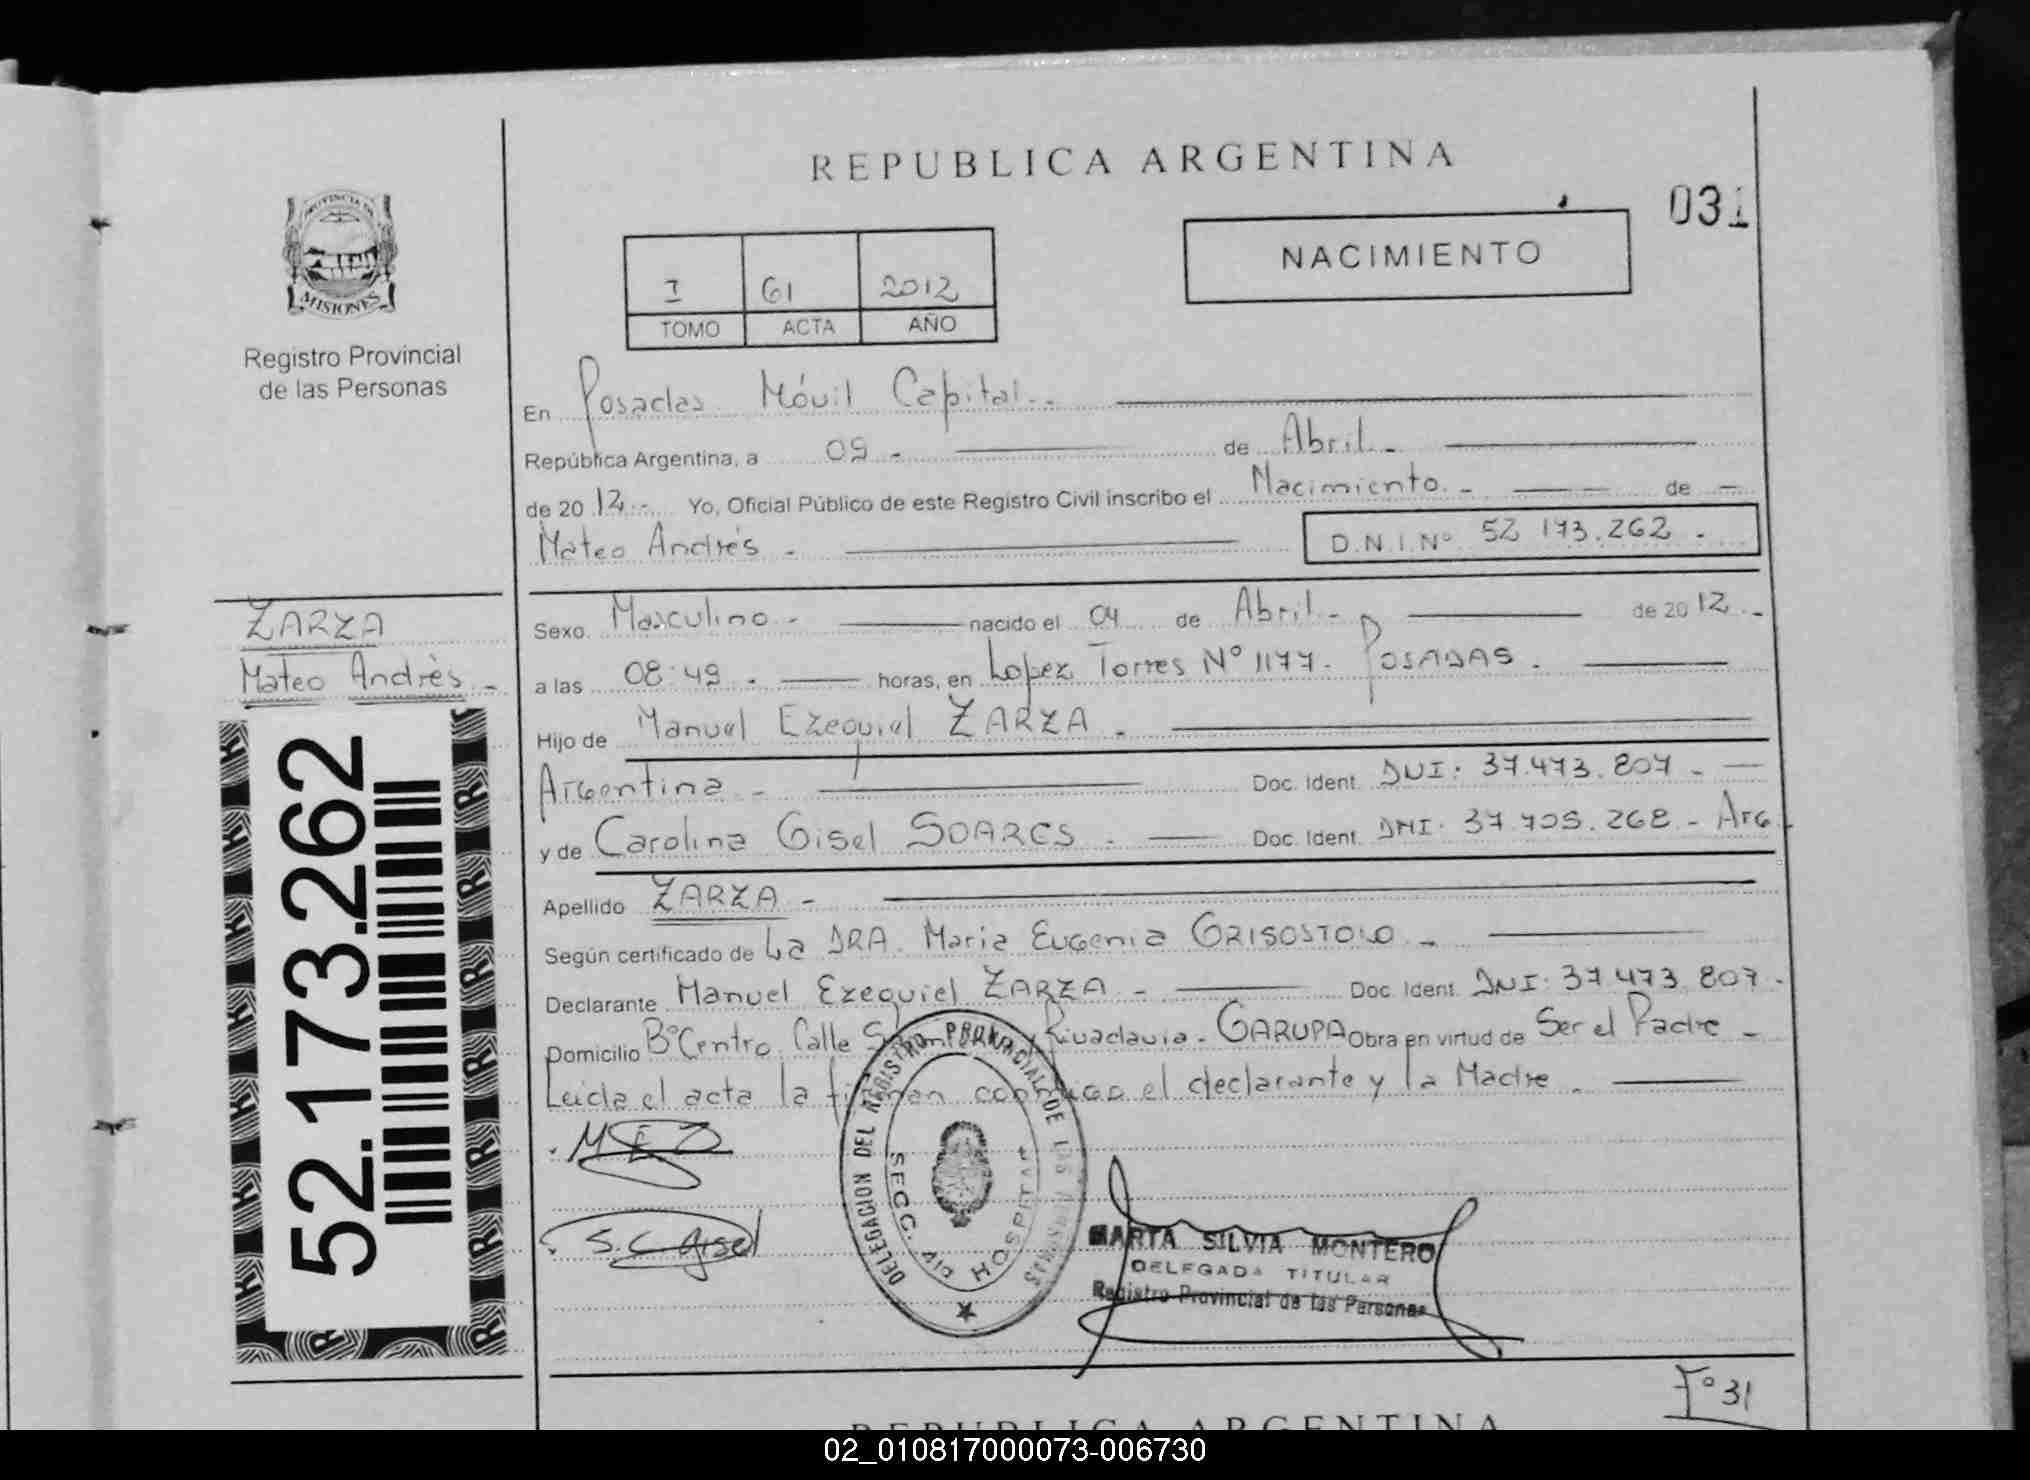 REPUBLICA ARGENTINA
031
PROVINCIA DE
MISIONES
Registro Provincial
de las Personas
NACIMIENTO
I 61 2012
TOMO ACTA AÑO
En Posadas Móvil Capital.-
República Argentina, a 09.- de Abril.-
de 2012.- Yo, Oficial Público de este Registro Civil inscribo el Nacimiento.- de -
Mateo Andrés.- D.N.I.Nº 52 173.262.
ZARZA
Mateo Andrès.-
Sexo. Masculino.- nacido el 04 de Abril.- de 2012.-
a las 08:49.- horas, en Lopez Torres Nº 1177. POSADAS.
Hijo de Manuel Ezequiel ZARZA.
Argentina.- Doc. Ident. DNI: 37.473.807.-
y de Carolina Gisel SOARES. Doc. Ident. DNI. 37.705.268.- Arg.
Apellido ZARZA.-
Según certificado de La DRA. Maria Eugenia
Declarante Manuel Ezequiel ZARZA.- Doc. Ident. DNI: 37.473.807.
Domicilio BºCentro. Calle Rivadavia. GARUPA Obra en virtud de Ser el Padre.-
Leida el acta la firman conmigo el declarante y la Madre.
52.173.262
M E Z
S.C. Gisel
DELEGACION DEL REGISTRO PROVINCIAL DE LAS PERSONAS
SECC. HOSPITAL
MARTA SILVIA MONTERO
DELEGADA TITULAR
Registro Provincial de las Personas
Fº 31
REPUBLICA ARGENTINA
02_010817000073-006730